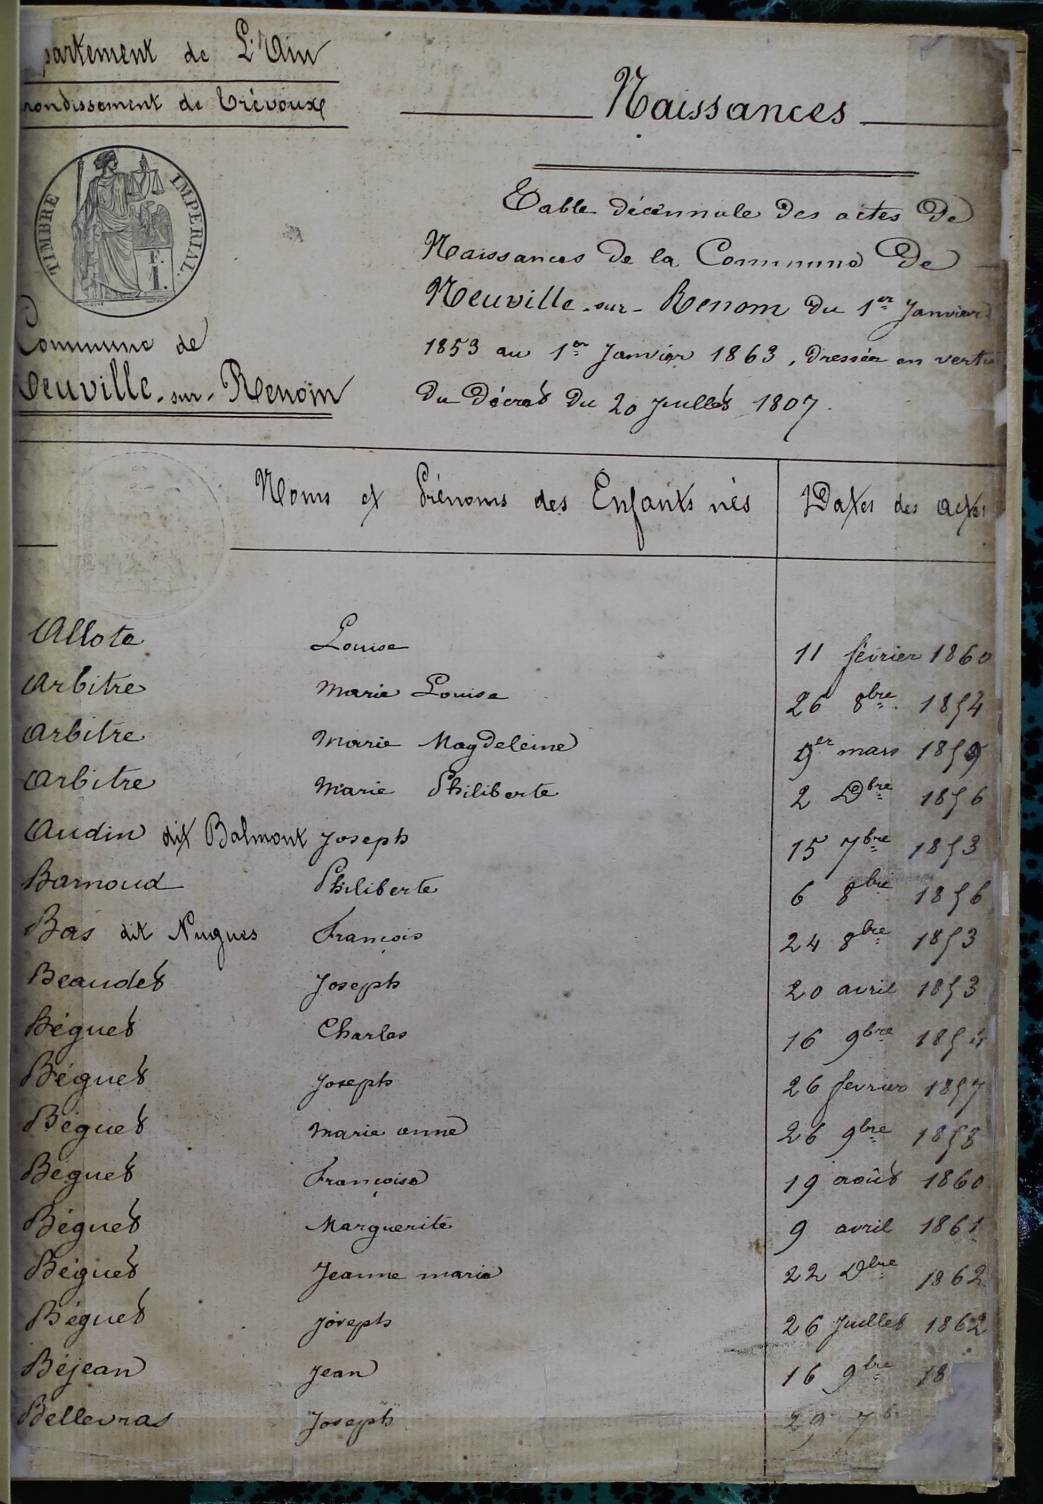 partement de L'Ain
rondissement de Trévoux
Naissances
TIMBRE IMPERIAL.
F.
1.
Table décennale des actes de
Naissances de la Commune de
Neuville-sur-Renom du 1er Janvier
1853 au 1er Janvier 1863, dressée en vertu
du Décret du 20 Juillet 1807.
Commune de
Neuville-sur-Renom
Noms et Prénoms des Enfants nés Dates des actes
Allote Louise 11 février 1860
Arbitre Marie Louise 26 8bre 1854
Arbitre Marie Magdeleine mars 1859
Arbitre Marie Philiberte 2 Dbre 1856
Audin dit Balmont Joseph 15 7bre 1853
Barnoud Philiberte 6 8bre 1856
Bas dit Nugues François 24 8bre 1853
Beaudet Joseph 20 avril 1853
Béguet Charles 16 9bre
Béguet Joseph 26 fevrier 1857
Béguet Marie anne 26 9bre 1858
Béguet Françoise 19 août 1860
Béguet Marguerite 9 avril 1861
Béguet Jeanne marie 22 Dbre 1862
Béguet joseph 26 Juillet 1862
Béjean Jean 16 9bre 18
Bellevras Joseph 29 7b